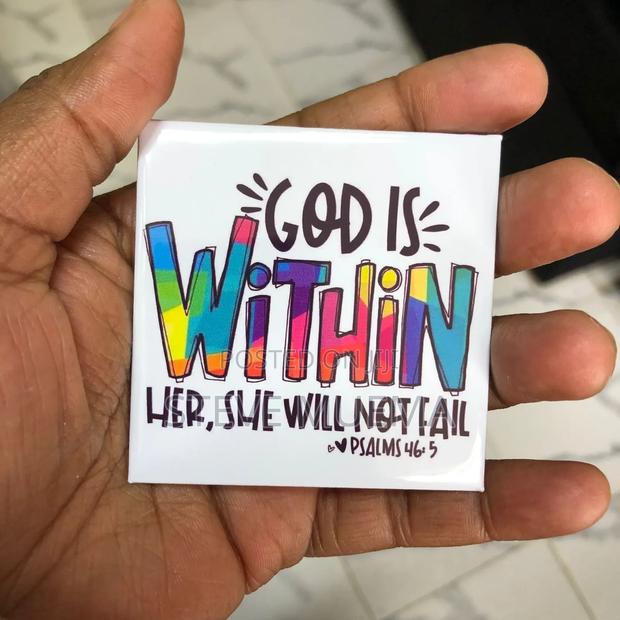 GOD IS
WiTHiN
HER, SHE WILL NOT FAIL
PSALMS 46:5
POSTED ON JIJI
STEVE